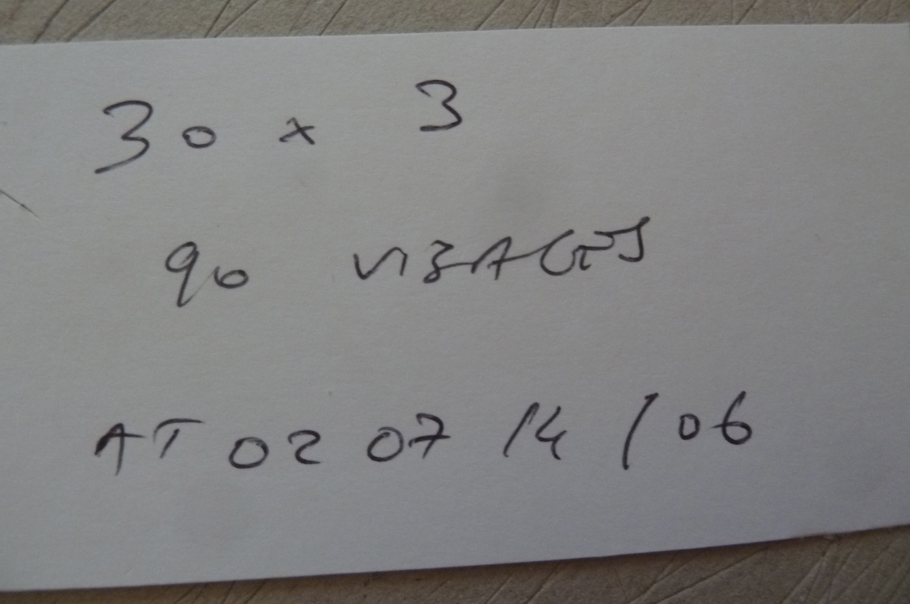 30 x 3
90 VISAGES
AT 02 07 14 / 06